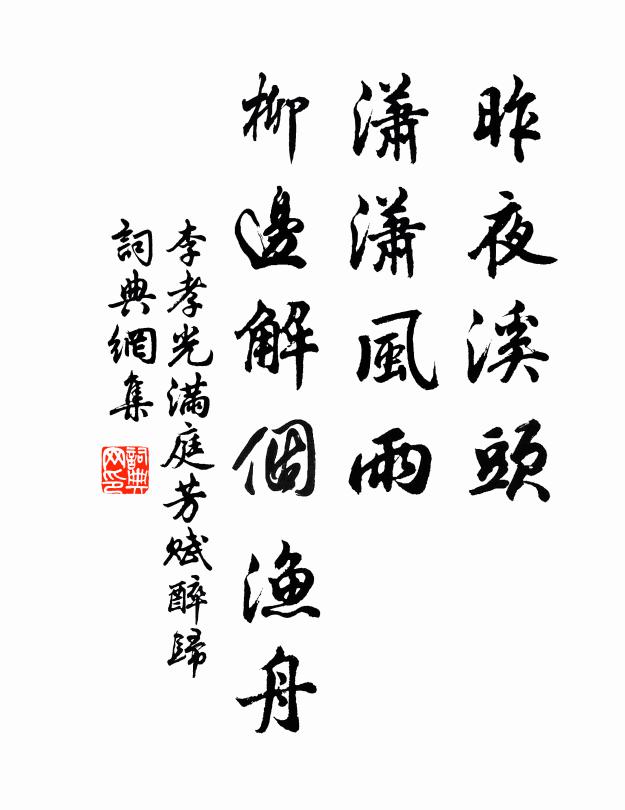 昨夜溪頭
瀟瀟風雨
柳邊解個漁舟
李孝光滿庭芳賦醉歸
詞典網集
詞典
网印